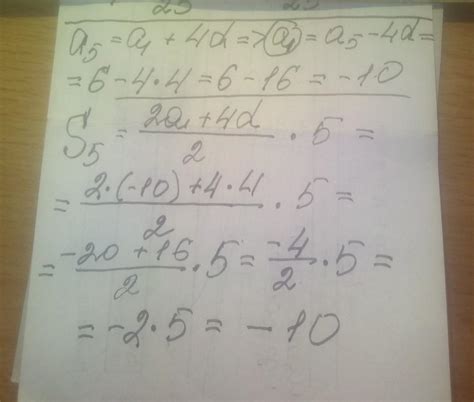 a₅ = a₁ + 4d => a₁ = a₅ - 4d =
= 6 - 4 • 4 = 6 - 16 = -10
S₅ = (2a₁ + 4d)/2 • 5 =
= (2 • (-10) + 4 • 4)/2 • 5 =
= (-20 + 16)/2 • 5 = (-4)/2 • 5 =
= -2 • 5 = -10